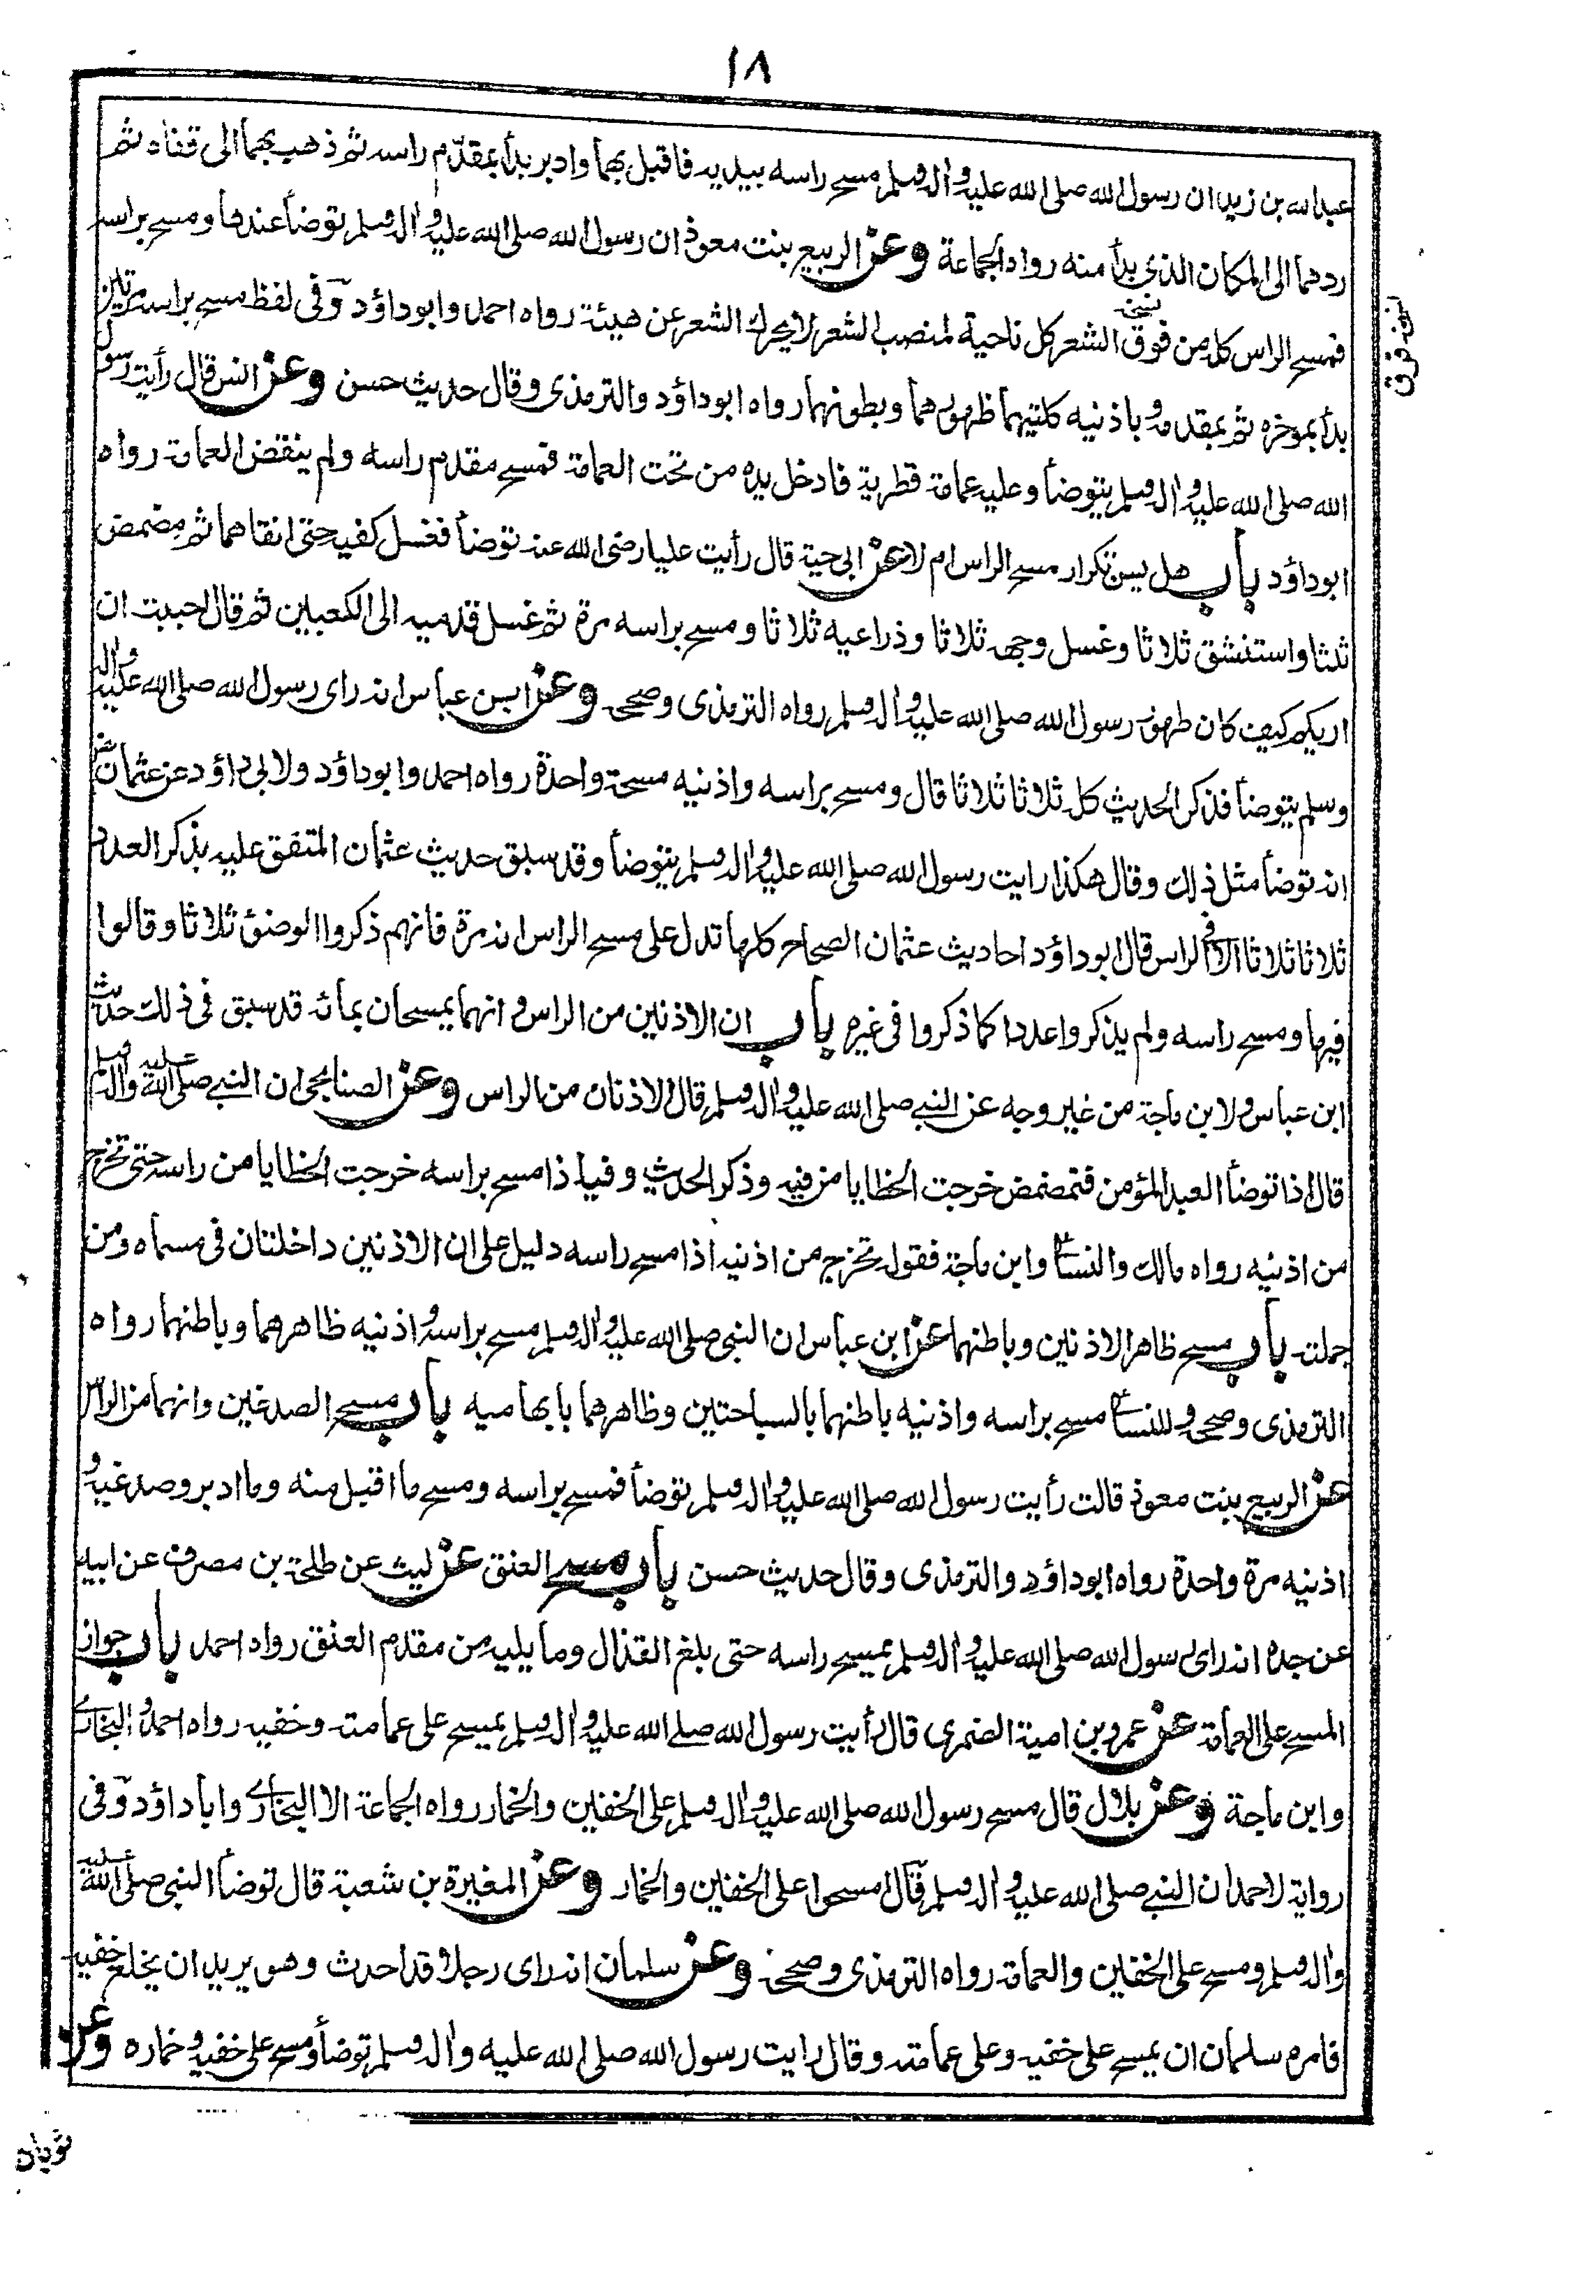 ١٨
عبدالله بن زيد ان رسول الله صلى الله عليه واله وسلم مسح راسه بيديه فاقبل بهما وادبر بدأ بمقدّم راسه ثم ذهب بهما الى قفاه ثم
ردهما الى المكان الذى بدأ منه رواه الجماعة وعن الربيع بنت معوذ ان رسول الله صلى الله عليه واله وسلم توضأ عندها ومسح براسه
فمسح الراس كله من فوق الشعر كل ناحية لمنصب الشعر لا يحرك الشعر عن هيئة رواه احمد وابوداؤد وفى لفظ مسح براسه مرتين
بدأ بموخره ثم بمقدمه وباذنيه كلتيهما ظهورهما وبطونهما رواه ابوداؤد والترمذى وقال حديث حسن وعن انس قال رأيت رسول
الله صلى الله عليه واله وسلم يتوضأ وعليه عمامة قطرية فادخل يده من تحت العمامة فمسح مقدم راسه ولم ينقض العمامة رواه
ابوداؤد باب هل يسن تكرار مسح الراس ام لا عن ابى حية قال رأيت عليا رضى الله عنه توضأ فغسل كفيه حتى انقاهما ثم مضمض
ثلثا واستنشق ثلاثا وغسل وجهه ثلاثا وذراعيه ثلاثا ومسح براسه مرة ثم غسل قدميه الى الكعبين ثم قال احببت ان
اريكم كيف كان طهور رسول الله صلى الله عليه واله وسلم رواه الترمذى وصححه وعن ابن عباس انه راى رسول الله صلى الله عليه واله
وسلم يتوضأ فذكر الحديث كله ثلاثا ثلاثا قال ومسح براسه واذنيه مسحة واحدة رواه احمد وابوداؤد ولابى داؤد عن عثمان رض
انه توضأ مثل ذلك وقال هكذا رايت رسول الله صلى الله عليه واله وسلم يتوضأ وقد سبق حديث عثمان المتفق عليه بذكر العدد
ثلاثا ثلاثا الا فى الراس قال ابوداؤد احاديث عثمان الصحاح كلها تدل على مسح الراس انه مرة فانهم ذكروا الوضوء ثلاثا وقالوا
فيها ومسح راسه ولم يذكروا عددا كما ذكروا فى غيره باب ان الاذنين من الراس وانهما يمسحان بمائه قد سبق فى ذلك حديث
ابن عباس ولابن ماجة من غير وجه عن النبى صلى الله عليه واله وسلم قال الاذنان من الراس وعن الصنابحى ان النبى صلى الله عليه واله وسلم
قال اذا توضأ العبد المؤمن فتمضمض خرجت الخطايا من فيه وذكر الحديث وفيه اذا مسح براسه خرجت الخطايا من راسه حتى تخرج
من اذنيه رواه مالك والنسائى وابن ماجة فقوله تخرج من اذنيه اذا مسح راسه دليل على ان الاذنين داخلتان فى مسماه ومن
جملته باب مسح ظاهر الاذنين وباطنهما عن ابن عباس ان النبى صلى الله عليه واله وسلم مسح براسه واذنيه ظاهرهما وباطنهما رواه
الترمذى وصححه وللنسائى مسح براسه واذنيه باطنهما بالسباحتين وظاهرهما بابهاميه باب مسح الصدغين وانهما من الراس
عن الربيع بنت معوذ قالت رأيت رسول الله صلى الله عليه واله وسلم توضأ فمسح براسه ومسح ما اقبل منه وما ادبر وصدغيه و
اذنيه مرة واحدة رواه ابوداؤد والترمذى وقال حديث حسن باب مسح العنق عن ليث عن طلحة بن مصرف عن ابيه
عن جده انه راى رسول الله صلى الله عليه واله وسلم يمسح راسه حتى بلغ القذال وما يليه من مقدم العنق رواه احمد باب جواز
المسح على العمامة عن عمرو بن امية الضمرى قال رأيت رسول الله صلى الله عليه واله وسلم يمسح على عمامته وخفيه رواه احمد والبخارى
وابن ماجة وعن بلال قال مسح رسول الله صلى الله عليه واله وسلم على الخفين والخمار رواه الجماعة الا البخارى وابا داؤد وفى
رواية لاحمد ان النبى صلى الله عليه واله وسلم قال امسحوا على الخفين والخمار وعن المغيرة بن شعبة قال توضأ النبى صلى الله عليه
واله وسلم ومسح على الخفين والعمامة رواه الترمذى وصححه وعن سلمان انه راى رجلا قد احدث وهو يريد ان يخلع خفيه
فامره سلمان ان يمسح على خفيه وعلى عمامته وقال رايت رسول الله صلى الله عليه واله وسلم توضأ ومسح على خفيه وخماره وعن
ثوبان